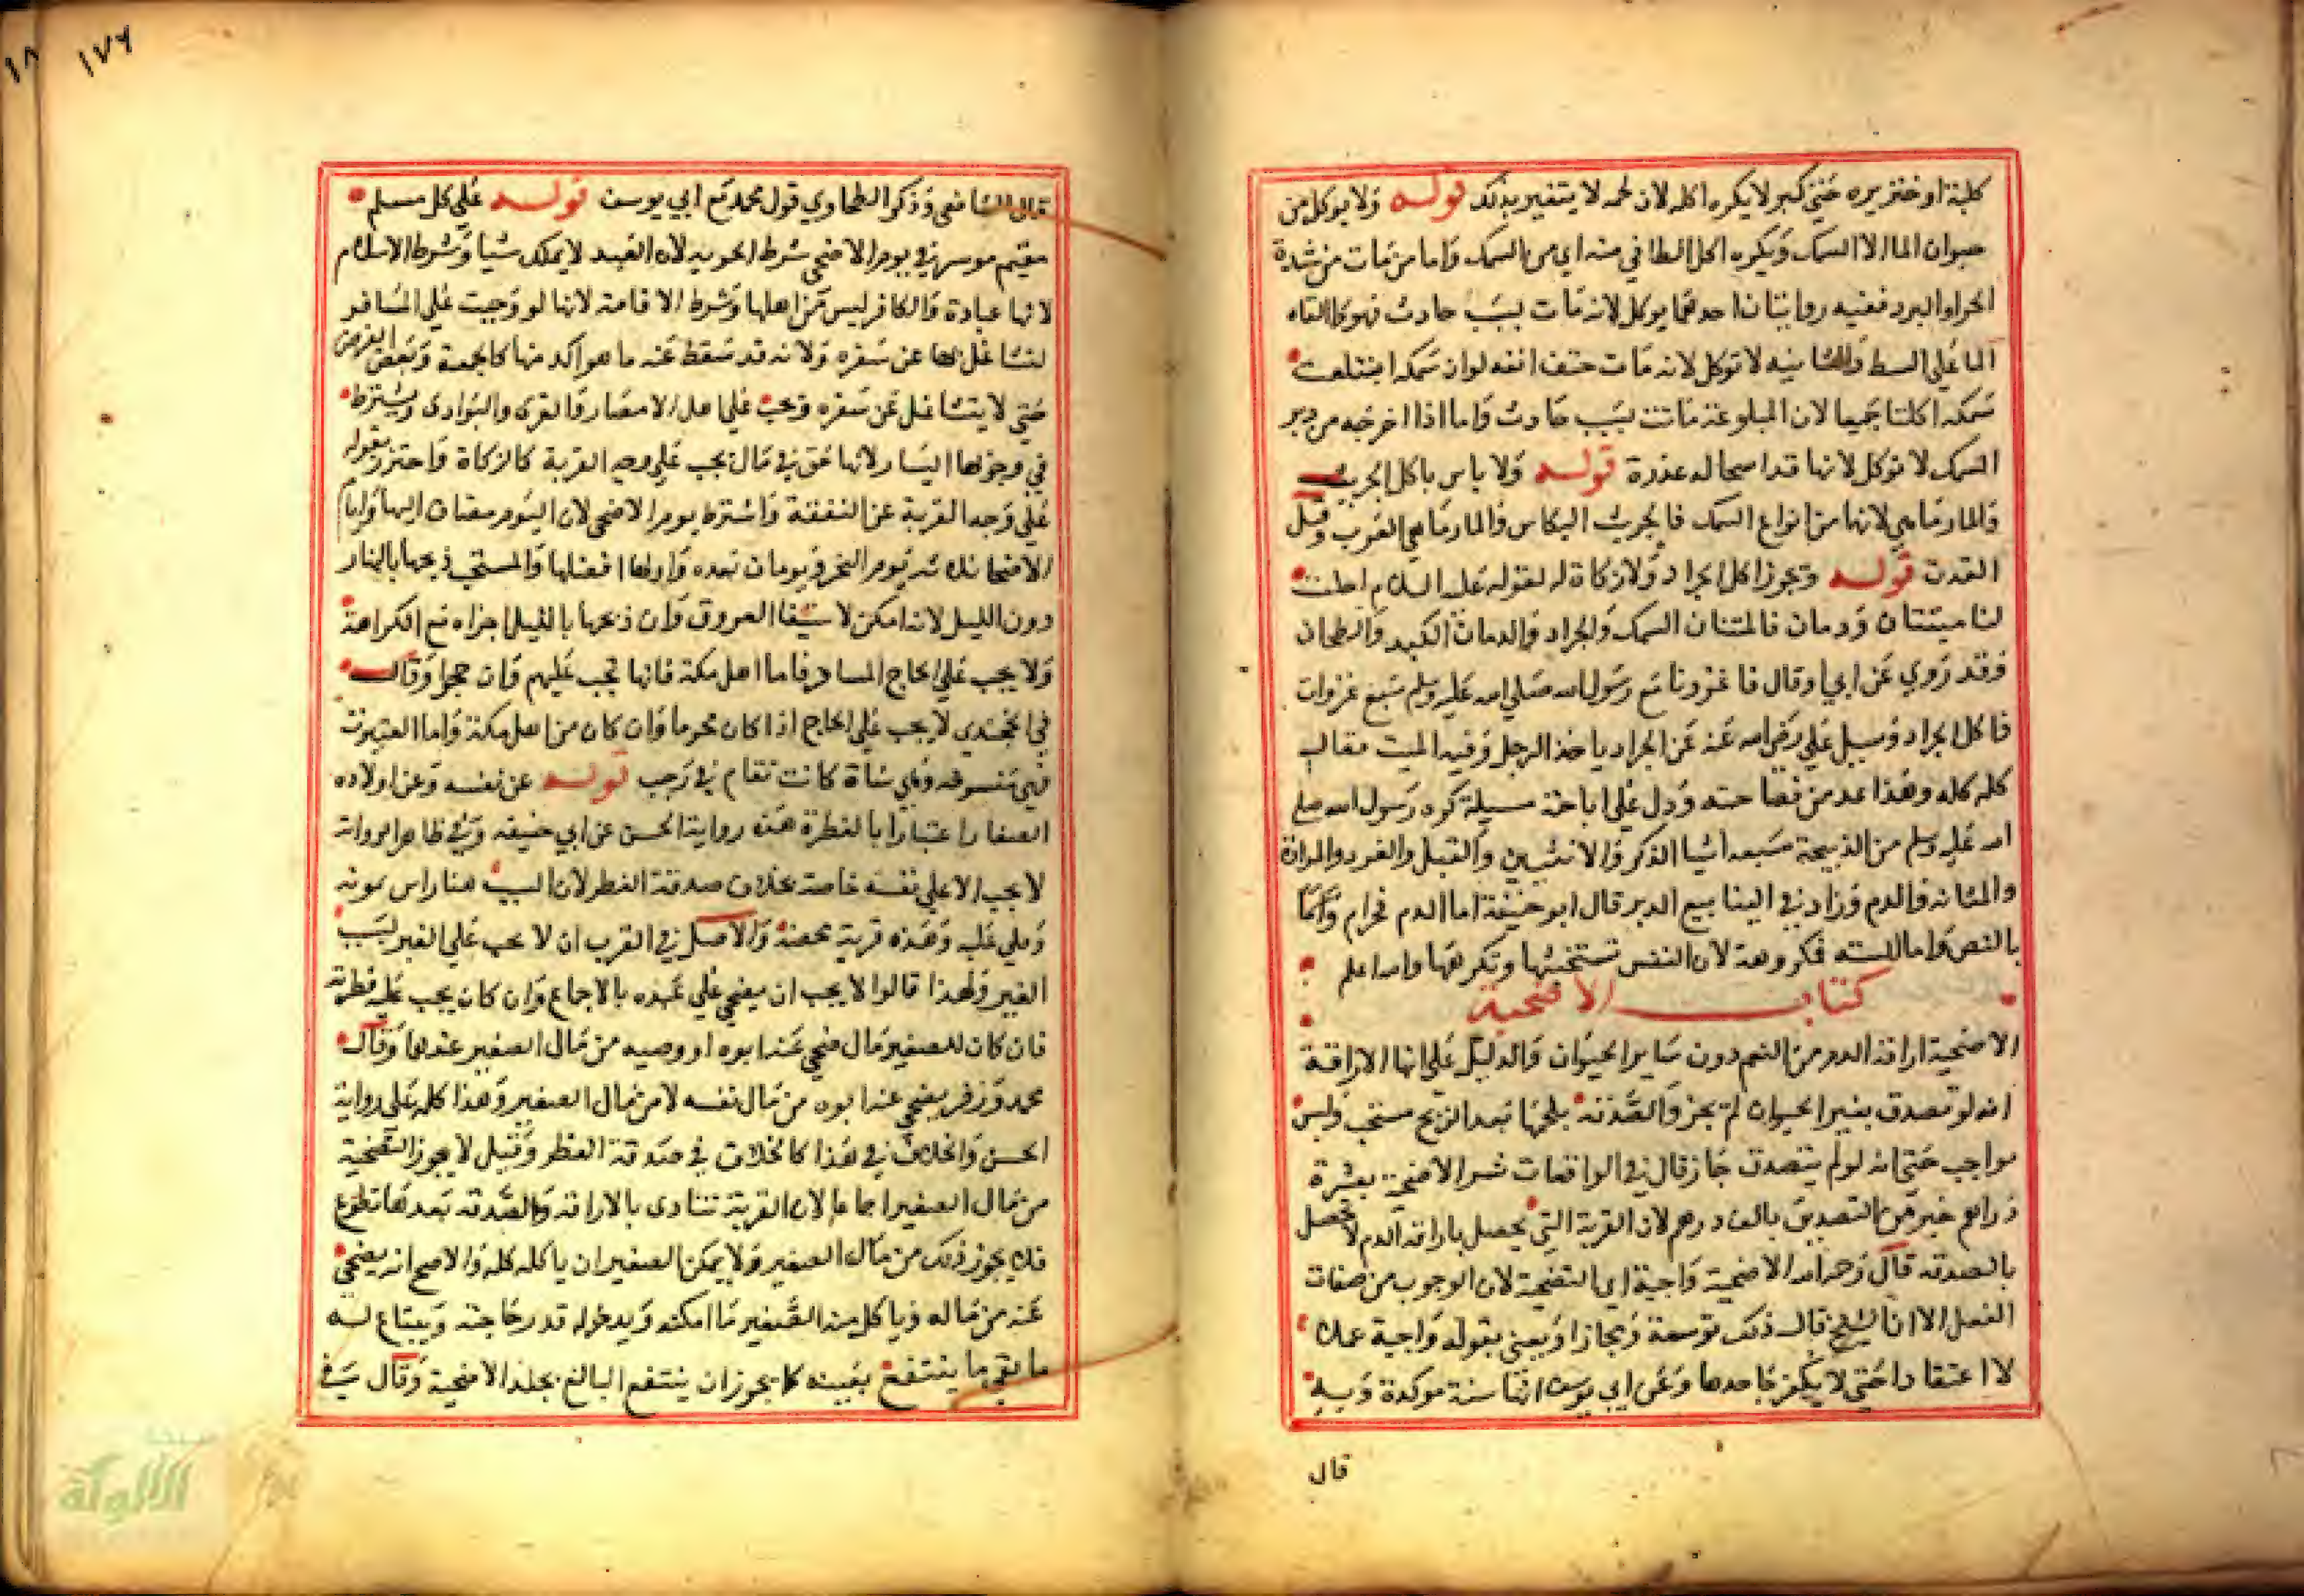 كلبة او خنزيره حتي كبر لا يكره اكله لان لحمه لا يتغير بذلك قوله ولا يوكل من
حيوان الما الا السمك ويكره اكل الطافي منه اي من السمك واما من مات من شدة
الحر او البرد ففيه روايتان احدهما يوكل لانه مات بسبب حادث فهو كما القاه
الما علي الشط والثانيه لا توكل لانه مات حتف انفه لو ان سمكه ابتلعت
سمكه اكلتا جميعا لان المبلوعة ماتت بسبب حادث واما اذا اخرجه من دبر
السمك لا توكل لانها قد استحاله عذرة قوله ولا باس باكل الجريث
والمارماهي لانها من انواع السمك فالجريث البكاس والمارماهي الغرب وقيل
القدت قوله ويجوز اكل الجراد ولا زكاة له لقوله عليه السلام احلت
لنا ميتتان ودمان فالمتتان السمك والجراد والدمان الكبد والطحان
وقد روي عن ابي اوقال فا غزونا مع رسول الله صلي الله عليه وسلم سبع غزوات
فاكل الجراد وسيل علي رضي الله عنه عن الجراد ياخذ الرجل وفيه الميت فقال
كله كله وهذا عد من فصاحته ودل علي اباحته مسيلة كره رسول الله صلي
الله عليه وسلم من الذبيحة سبعه اشيا الذكر والانثيين والقبل والغدد والمرارة
والمثانه والدم وزاد في الينابيع الدبر قال ابو حنيفة اما الدم فحرام
بالنص واما الستة فكروهة لان النفس تستخبثها وتكرهها والله اعلم
كتاب الاضحية
الاضحية اراقة الدم من النعم دون ساير الحيوان والدليل علي انها الاراقة
انه لو تصدق بغير الحيوان لم يجز والصدقة بلحمها بعد الذبح مستحب وليس
بواجب حتي انه لو لم يتصدق جاز قال في الواقعات شرا الاضحية بعشرة
دراهم خير من التصديق بالف درهم لان القربة التي تحصل باراقة الدم لا تحصل
بالصدقه قال رحمه الله الاضحية واجبة اي التضحية لان الوجوب من صفات
الفعل الا ان الشيخ قال ذلك توسعة ومجازا ويعني بقوله واجبة عملا
لا اعتقادا حتي لا يكفر جاحدها وعن ابي يوسف انها سنة موكدة وبه
قال
١٧٦
قال الشافعي وذكر الطحاوي قول محمد مع ابي يوسف قوله علي كل مسلم
مقيم موسر في يوم الاضحي شرط الحرية لان العبد لا يملك شيا وشرط الاسلام
لانها عبادة والكافر ليس من اهلها وشرط الاقامة لانها لو وجبت علي المسافر
لتشاغل بها عن سفره ولانه قد سقط عنه ما هو اكد منها كالجمعة وبعض الفرض
حتي لا يتشاغل عن سفره وتجب علي اهل الامصار والقري والبوادي ويشترط
في وجوبها اليسار لانها حق في مال يجب علي وجه القربة كالزكاة واحترز بقوله
علي وجه القربة عن النفقة واشترط يوم الاضحي لان اليوم مضاف اليها وايام
الاضحا ثلاثه يوم النحر ويومان بعده واولها افضلها والمستحب ذبحها بالنهار
دون الليل لانه امكن لاستيفا العروق وان ذبحها بالليل اجزاه مع الكراهة
ولا يجب علي الحاج المسافر فاما اهل مكة فانها تجب عليهم وان حجوا وقال
في الخجندي لا يجب علي الحاج اذا كان محرما وان كان من اهل مكة واما العتيرة
فهي منسوخه وهي شاة كانت تقام في رجب قوله عن نفسه وعن اولاده
الصغار اعتبارا بالفطرة هذه رواية الحسن عن ابي حنيفه وفي ظاهر الرواية
لا يجب الا علي نفسه خاصة بخلاف صدقة الفطر لان السبب هنا راس يمونه
ويلي عليه وهذه قربة محضة والاصل في القرب ان لا يجب علي الغير بسبب
الغير ولهذا قالوا لا يجب ان يضحي علي عبده بالاجماع وان كان يجب عليه فطرته
فان كان للصغير مال ضحي عنه ابوه او وصيه من مال الصغير عندهما وقال
محمد وزفر يضحي عنه ابوه من مال نفسه لا من مال الصغير وهذا كله علي رواية
الحسن والخلاف في هذا كالخلاف في صدقة الفطر وقيل لا يجوز التضحية
من مال الصغير اجماعا لان القربة تتادي بالاراقة والصدقه بعدها تطوع
فلا يجوز ذلك من مال الصغير ولا يمكن الصغير ان ياكله كله والاصح انه يضحي
عنه من ماله وياكل منه الصغير ما امكنه ويدخر له قدر حاجته ويبتاع له
ما بقي ما ينتفع بعينه كما يجوز ان ينتفع البالغ بجلد الاضحية وقال في
الألوكة